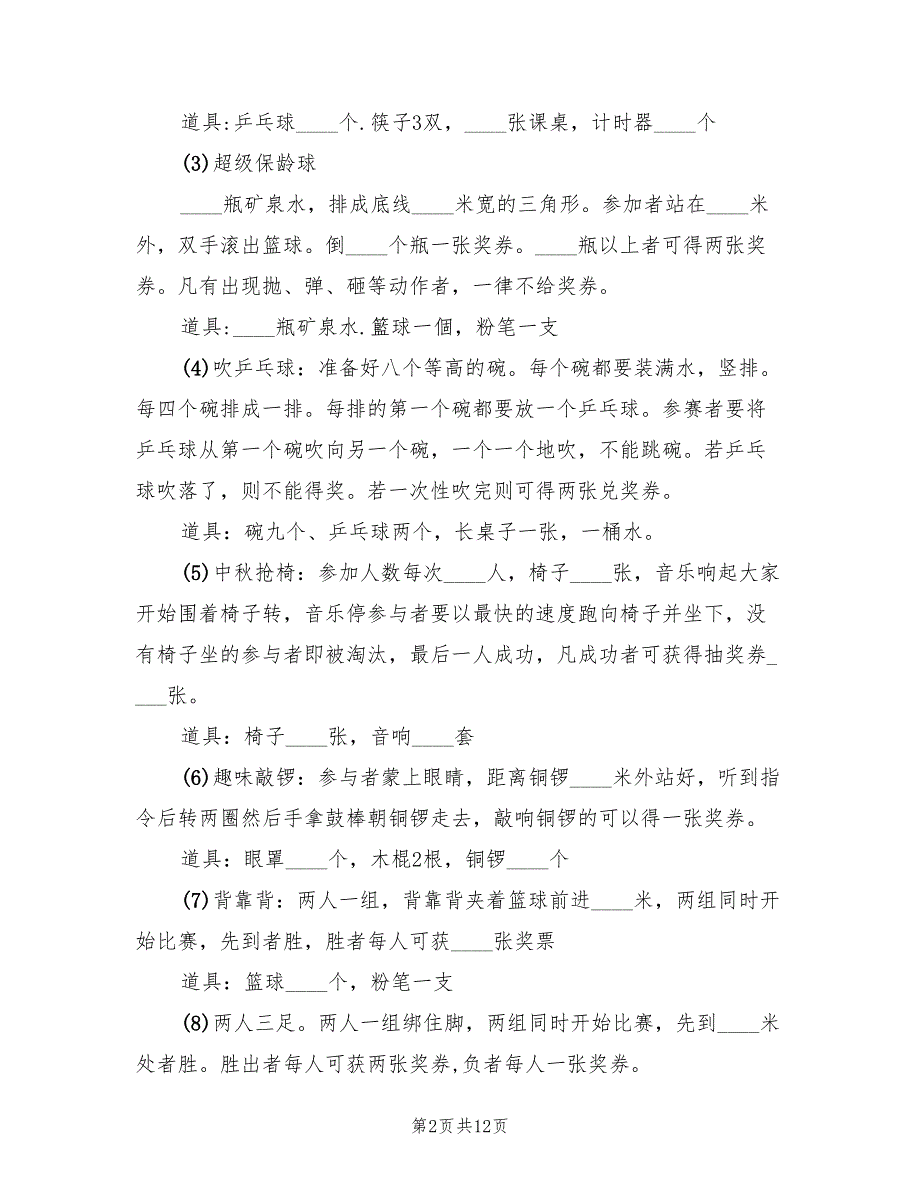 道具:乒乓球____个.筷子3双，____张课桌，计时器____个
(3)超级保龄球
____瓶矿泉水，排成底线____米宽的三角形。参加者站在____米
外，双手滚出篮球。倒____个瓶一张奖券。____瓶以上者可得两张奖
券。凡有出现抛、弹、砸等动作者，一律不给奖券。
道具:____瓶矿泉水.籃球一個，粉笔一支
(4)吹乒乓球：准备好八个等高的碗。每个碗都要装满水，竖排。
每四个碗排成一排。每排的第一个碗都要放一个乒乓球。参赛者要将
乒乓球从第一个碗吹向另一个碗，一个一个地吹，不能跳碗。若乒乓
球吹落了，则不能得奖。若一次性吹完则可得两张兑奖券。
道具：碗九个、乒乓球两个，长桌子一张，一桶水。
(5)中秋抢椅：参加人数每次____人，椅子____张，音乐响起大家
开始围着椅子转，音乐停参与者要以最快的速度跑向椅子并坐下，没
有椅子坐的参与者即被淘汰，最后一人成功，凡成功者可获得抽奖券_
___张。
道具：椅子____张，音响____套
(6)趣味敲锣：参与者蒙上眼睛，距离铜锣____米外站好，听到指
令后转两圈然后手拿鼓棒朝铜锣走去，敲响铜锣的可以得一张奖券。
道具：眼罩____个，木棍2根，铜锣____个
(7)背靠背：两人一组，背靠背夹着篮球前进____米，两组同时开
始比赛，先到者胜，胜者每人可获____张奖票
道具：篮球____个，粉笔一支
(8)两人三足。两人一组绑住脚，两组同时开始比赛，先到____米
处者胜。胜出者每人可获两张奖券,负者每人一张奖券。
第2页共12页